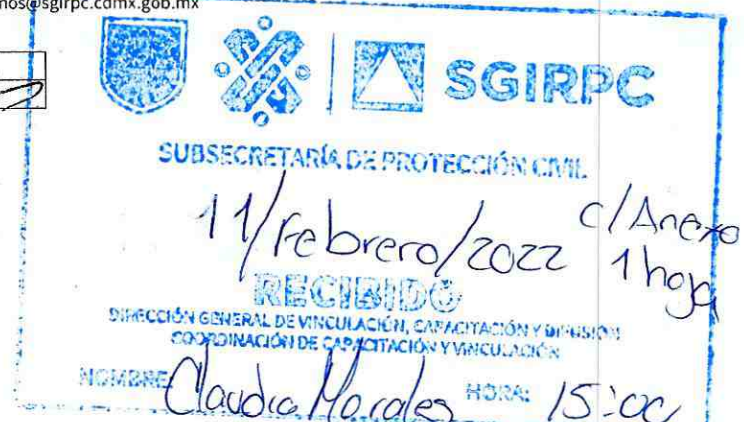 nos@sgirpc.cdmx.gob.mx
SGIRPC
SUBSECRETARÍA DE PROTECCIÓN CIVIL
11/Febrero/2022 c/Anexo
1 hoja
RECIBIDO
DIRECCIÓN GENERAL DE VINCULACIÓN, CAPACITACIÓN Y DIFUSIÓN
COORDINACIÓN DE CAPACITACIÓN Y VINCULACIÓN
NOMBRE Claudia Morales HORA: 15:00